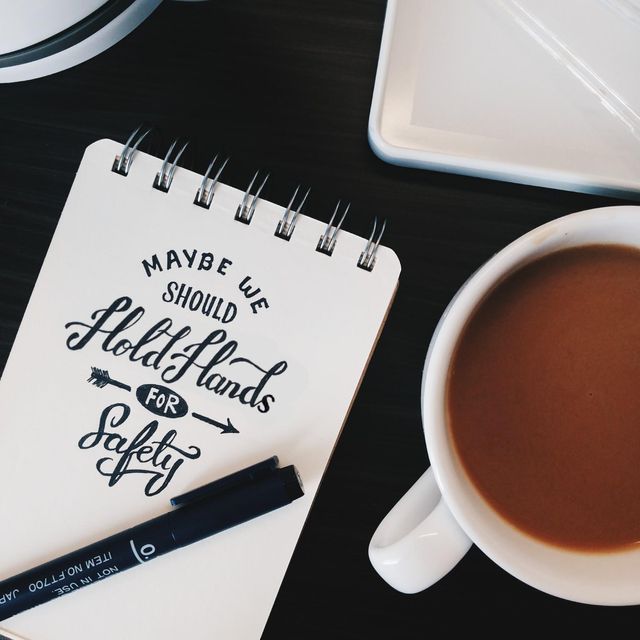 MAYBE WE
SHOULD
Hold Hands
FOR
Safety
NOT IN USE.
ITEM NO.FT700 JAP